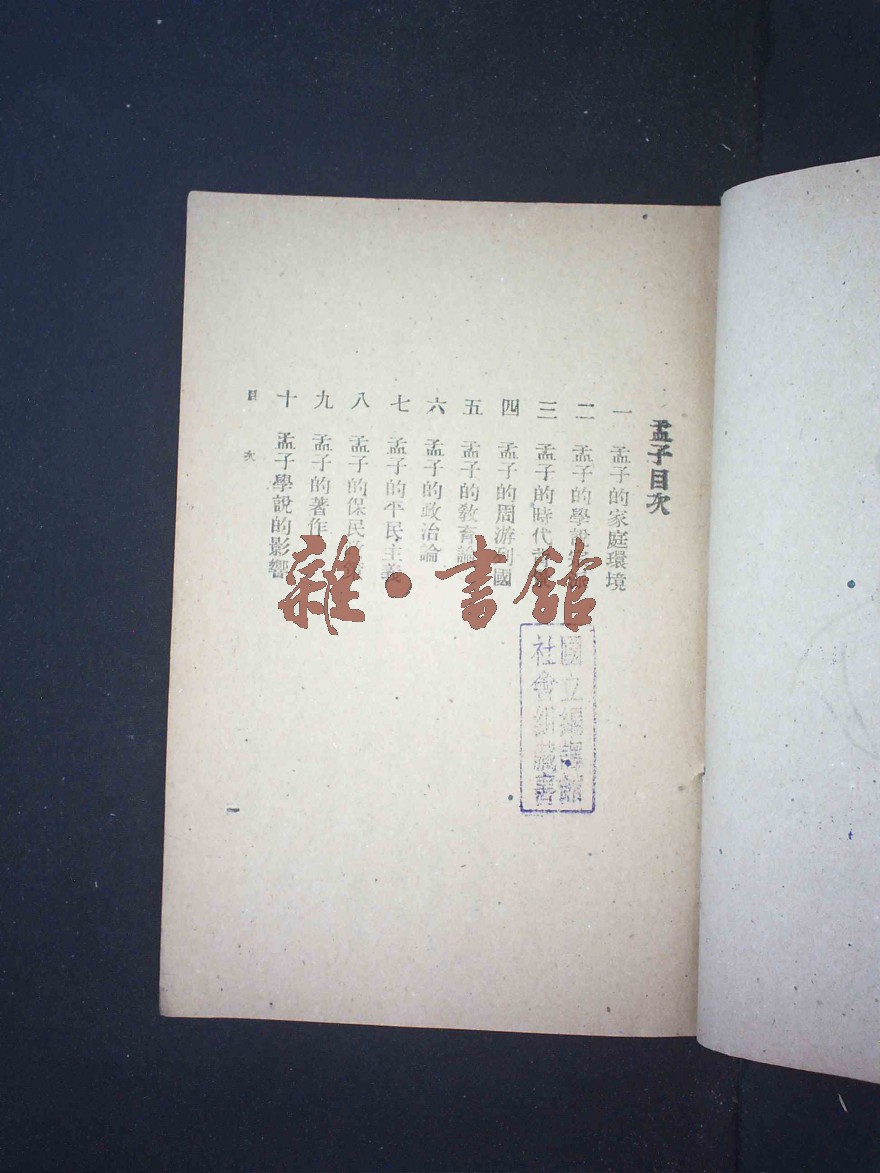 孟子目次
一 孟子的家庭環境
二 孟子的學說
三 孟子的時代背景
四 孟子的周游列國
五 孟子的教育論
六 孟子的政治論
七 孟子的平民主義
八 孟子的保民
九 孟子的著作
十 孟子學說的影響
目次
一
雜·書館
國立編譯館
社會組藏書